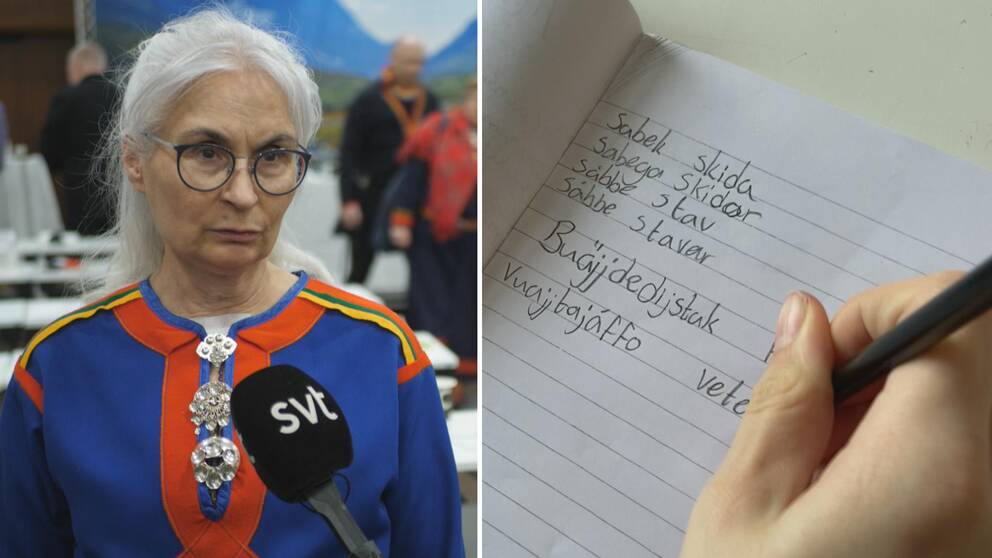 svt
sabek skida
sabega skidor
sábbe stav
sábbe stavar
Buajjdedijstuk
vuajjbajáffo
vete